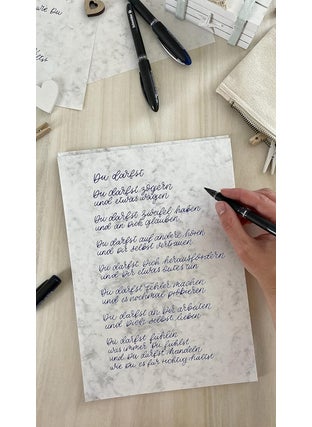 Du darfst
Du darfst zögern
und etwas wagen
Du darfst Zweifel haben
und an Dich glauben
Du darfst auf andere hören
und Dir selbst vertrauen
Du darfst Dich herausfordern
und Dir etwas Gutes tun
Du darfst Fehler machen
und es nochmal probieren
Du darfst an Dir arbeiten
und Dich selbst lieben
Du darfst fühlen
was immer Du fühlst
und Du darfst handeln
wie Du es für richtig hältst